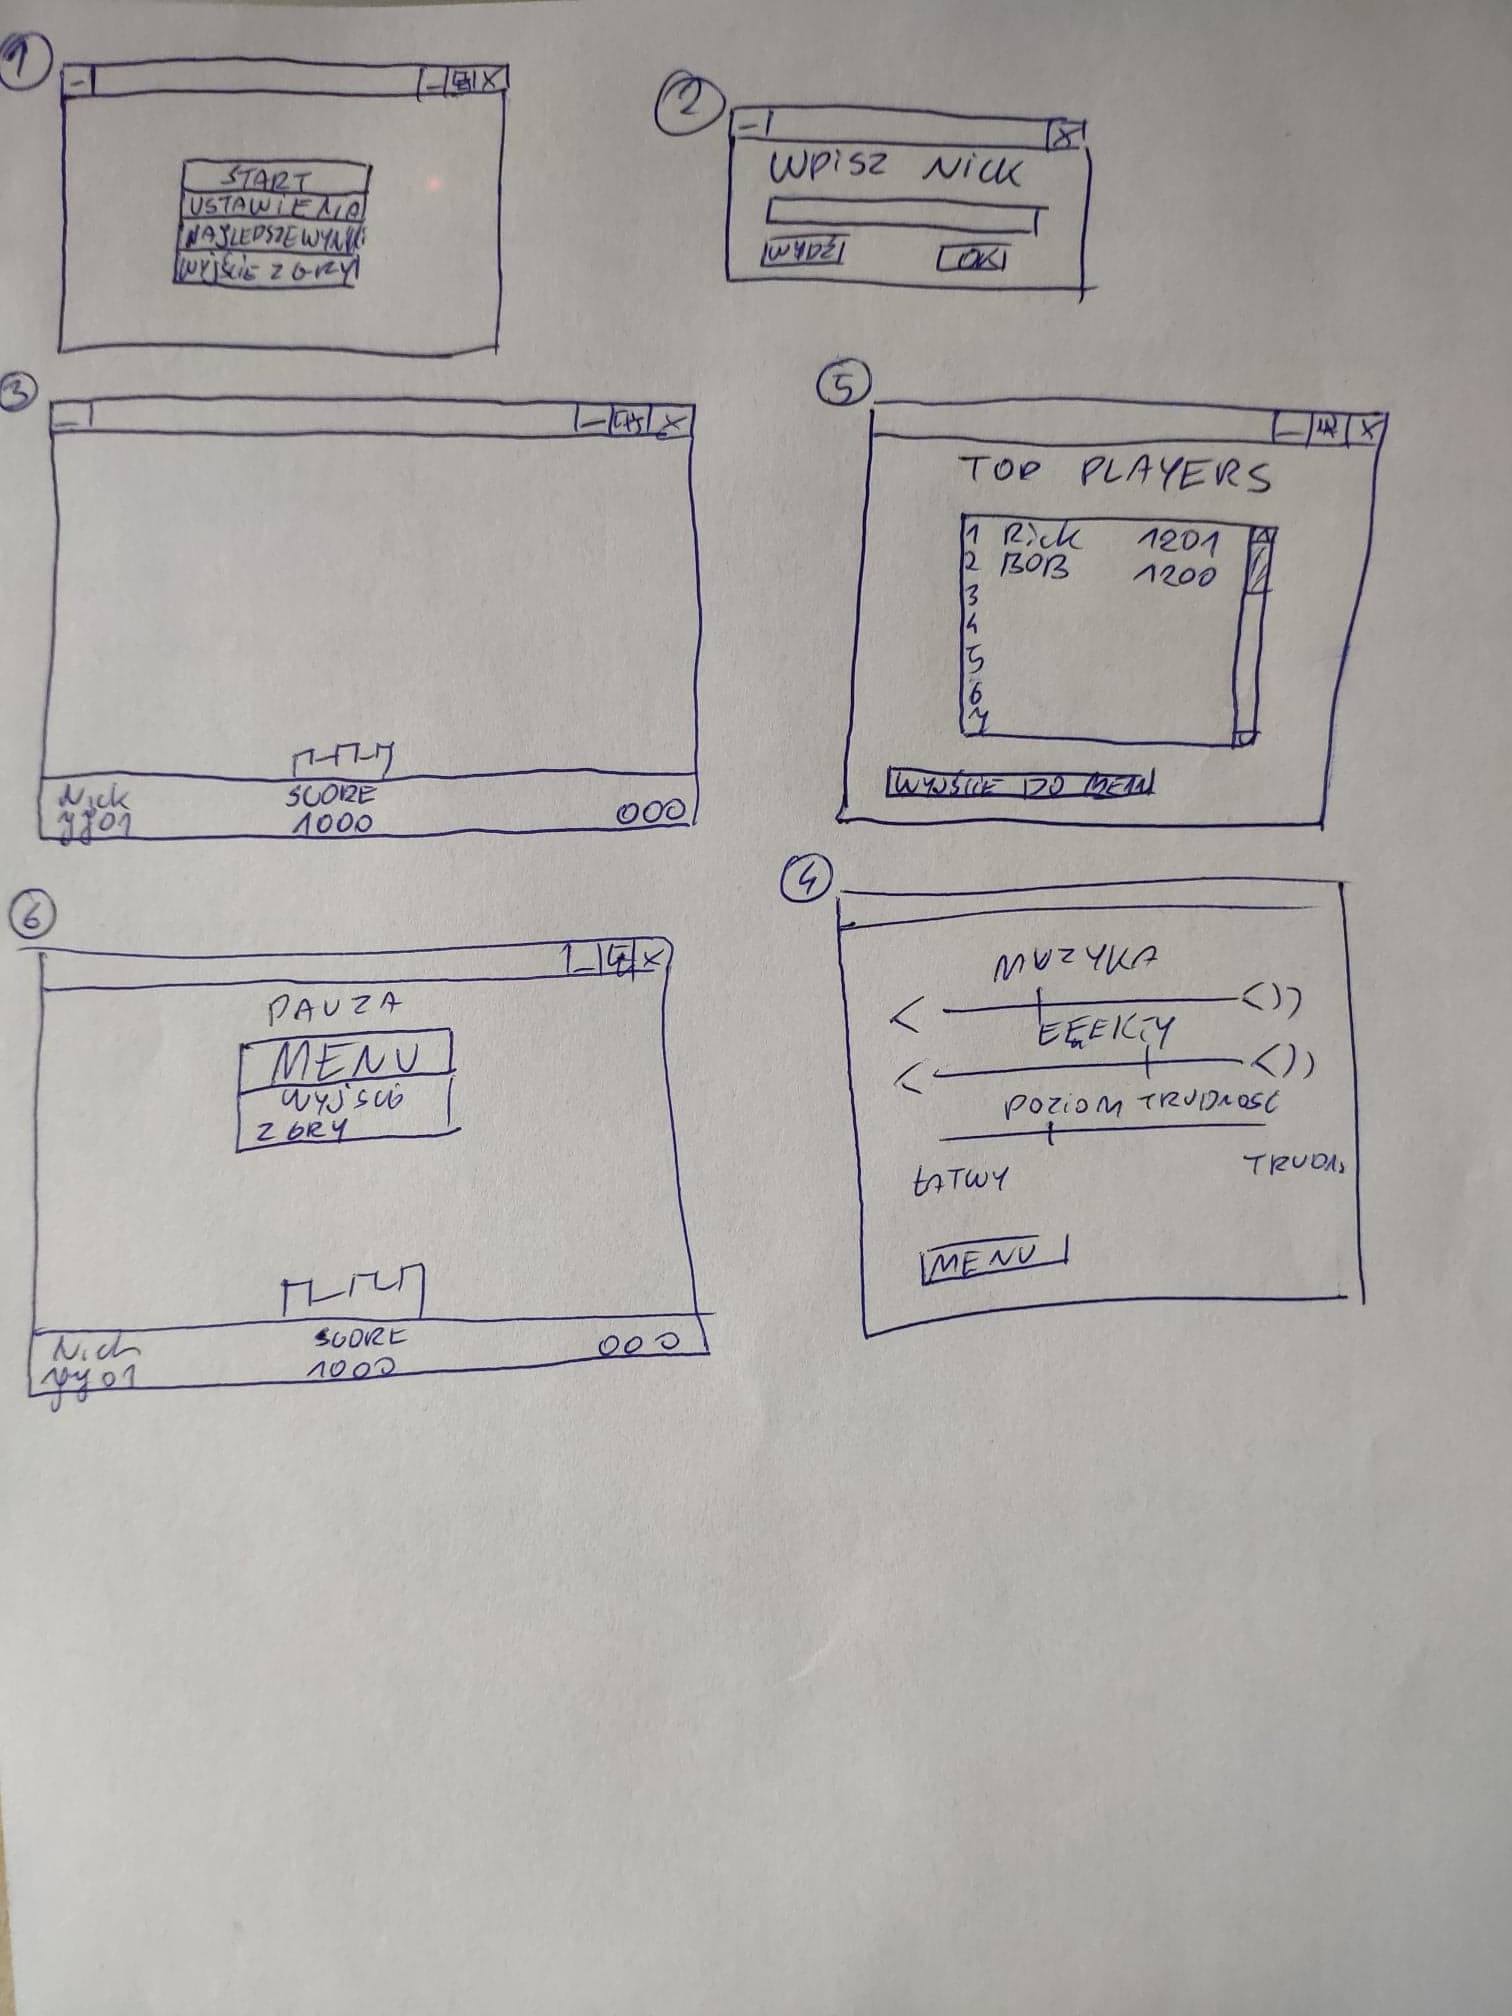 1
START
USTAWIENIA
NAJLEPSZE WYNIKI
WYJŚCIE Z GRY
2
WPISZ NICK
WYDŹ
OK
3
Nick
SCORE
yy01
1000
000
5
TOP PLAYERS
1 Rick 1201
2 BOB 1200
3
4
5
6
7
WYJŚCIE DO MENU
6
PAUZA
MENU
WYJŚCIE
Z GRY
Nick
SCORE
yy01
1000
000
4
MUZYKA
EFEKTY
POZIOM TRUDNOŚĆ
ŁATWY
TRUDN
MENU